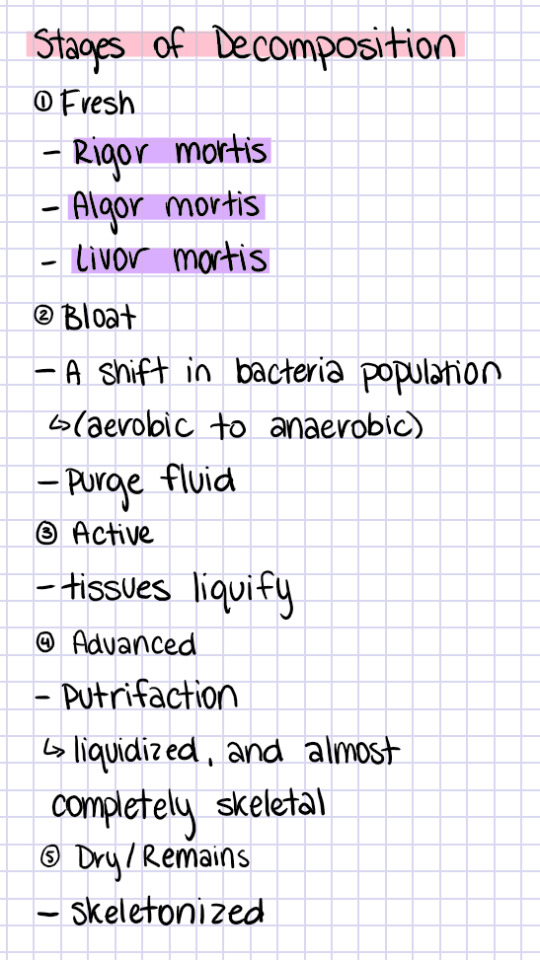 Stages of Decomposition
① Fresh
- Rigor mortis
- Algor mortis
- Livor mortis
② Bloat
- A shift in bacteria population
↳ (aerobic to anaerobic)
- Purge fluid
③ Active
- tissues liquify
④ Advanced
- Putrifaction
↳ liquidized, and almost
completely skeletal
⑤ Dry/Remains
- Skeletonized